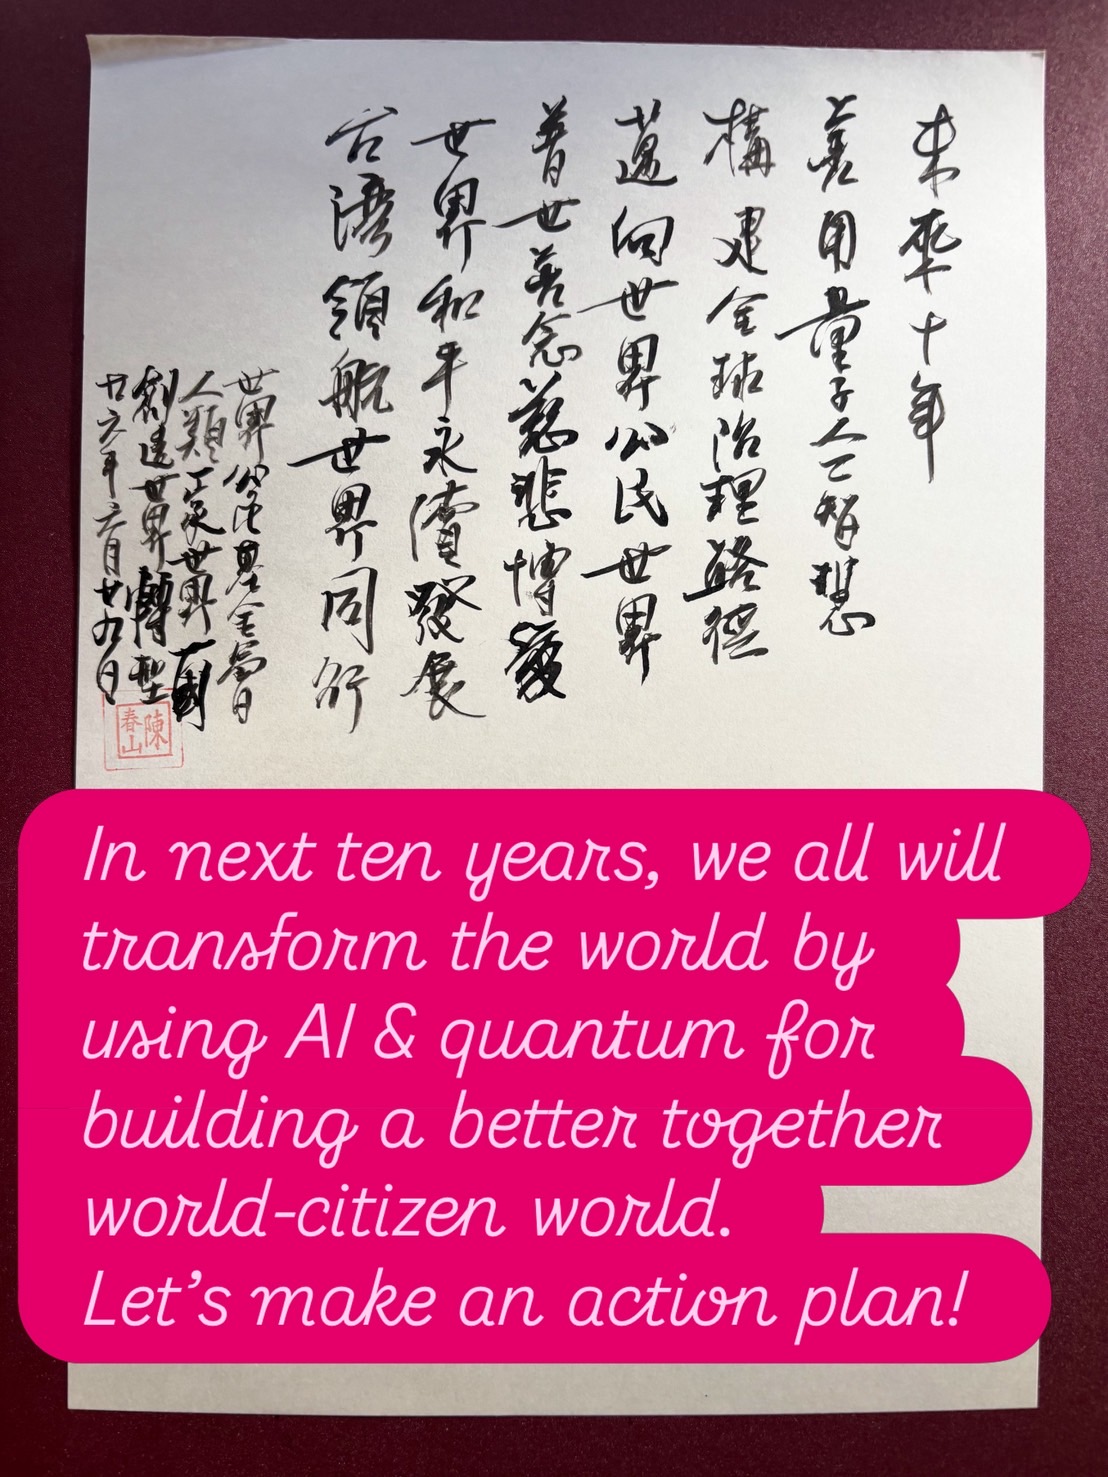 未來十年
善用量子人工智慧
構建全球治理路徑
邁向世界公民世界
普世善念慈悲博愛
世界和平永續發展
台灣領航世界同行
世界公民基金會日
人類一家世界一國
創造世界轉型
廿六年六月廿九日
陳春山
In next ten years, we all will
transform the world by
using AI & quantum for
building a better together
world-citizen world.
Let's make an action plan!